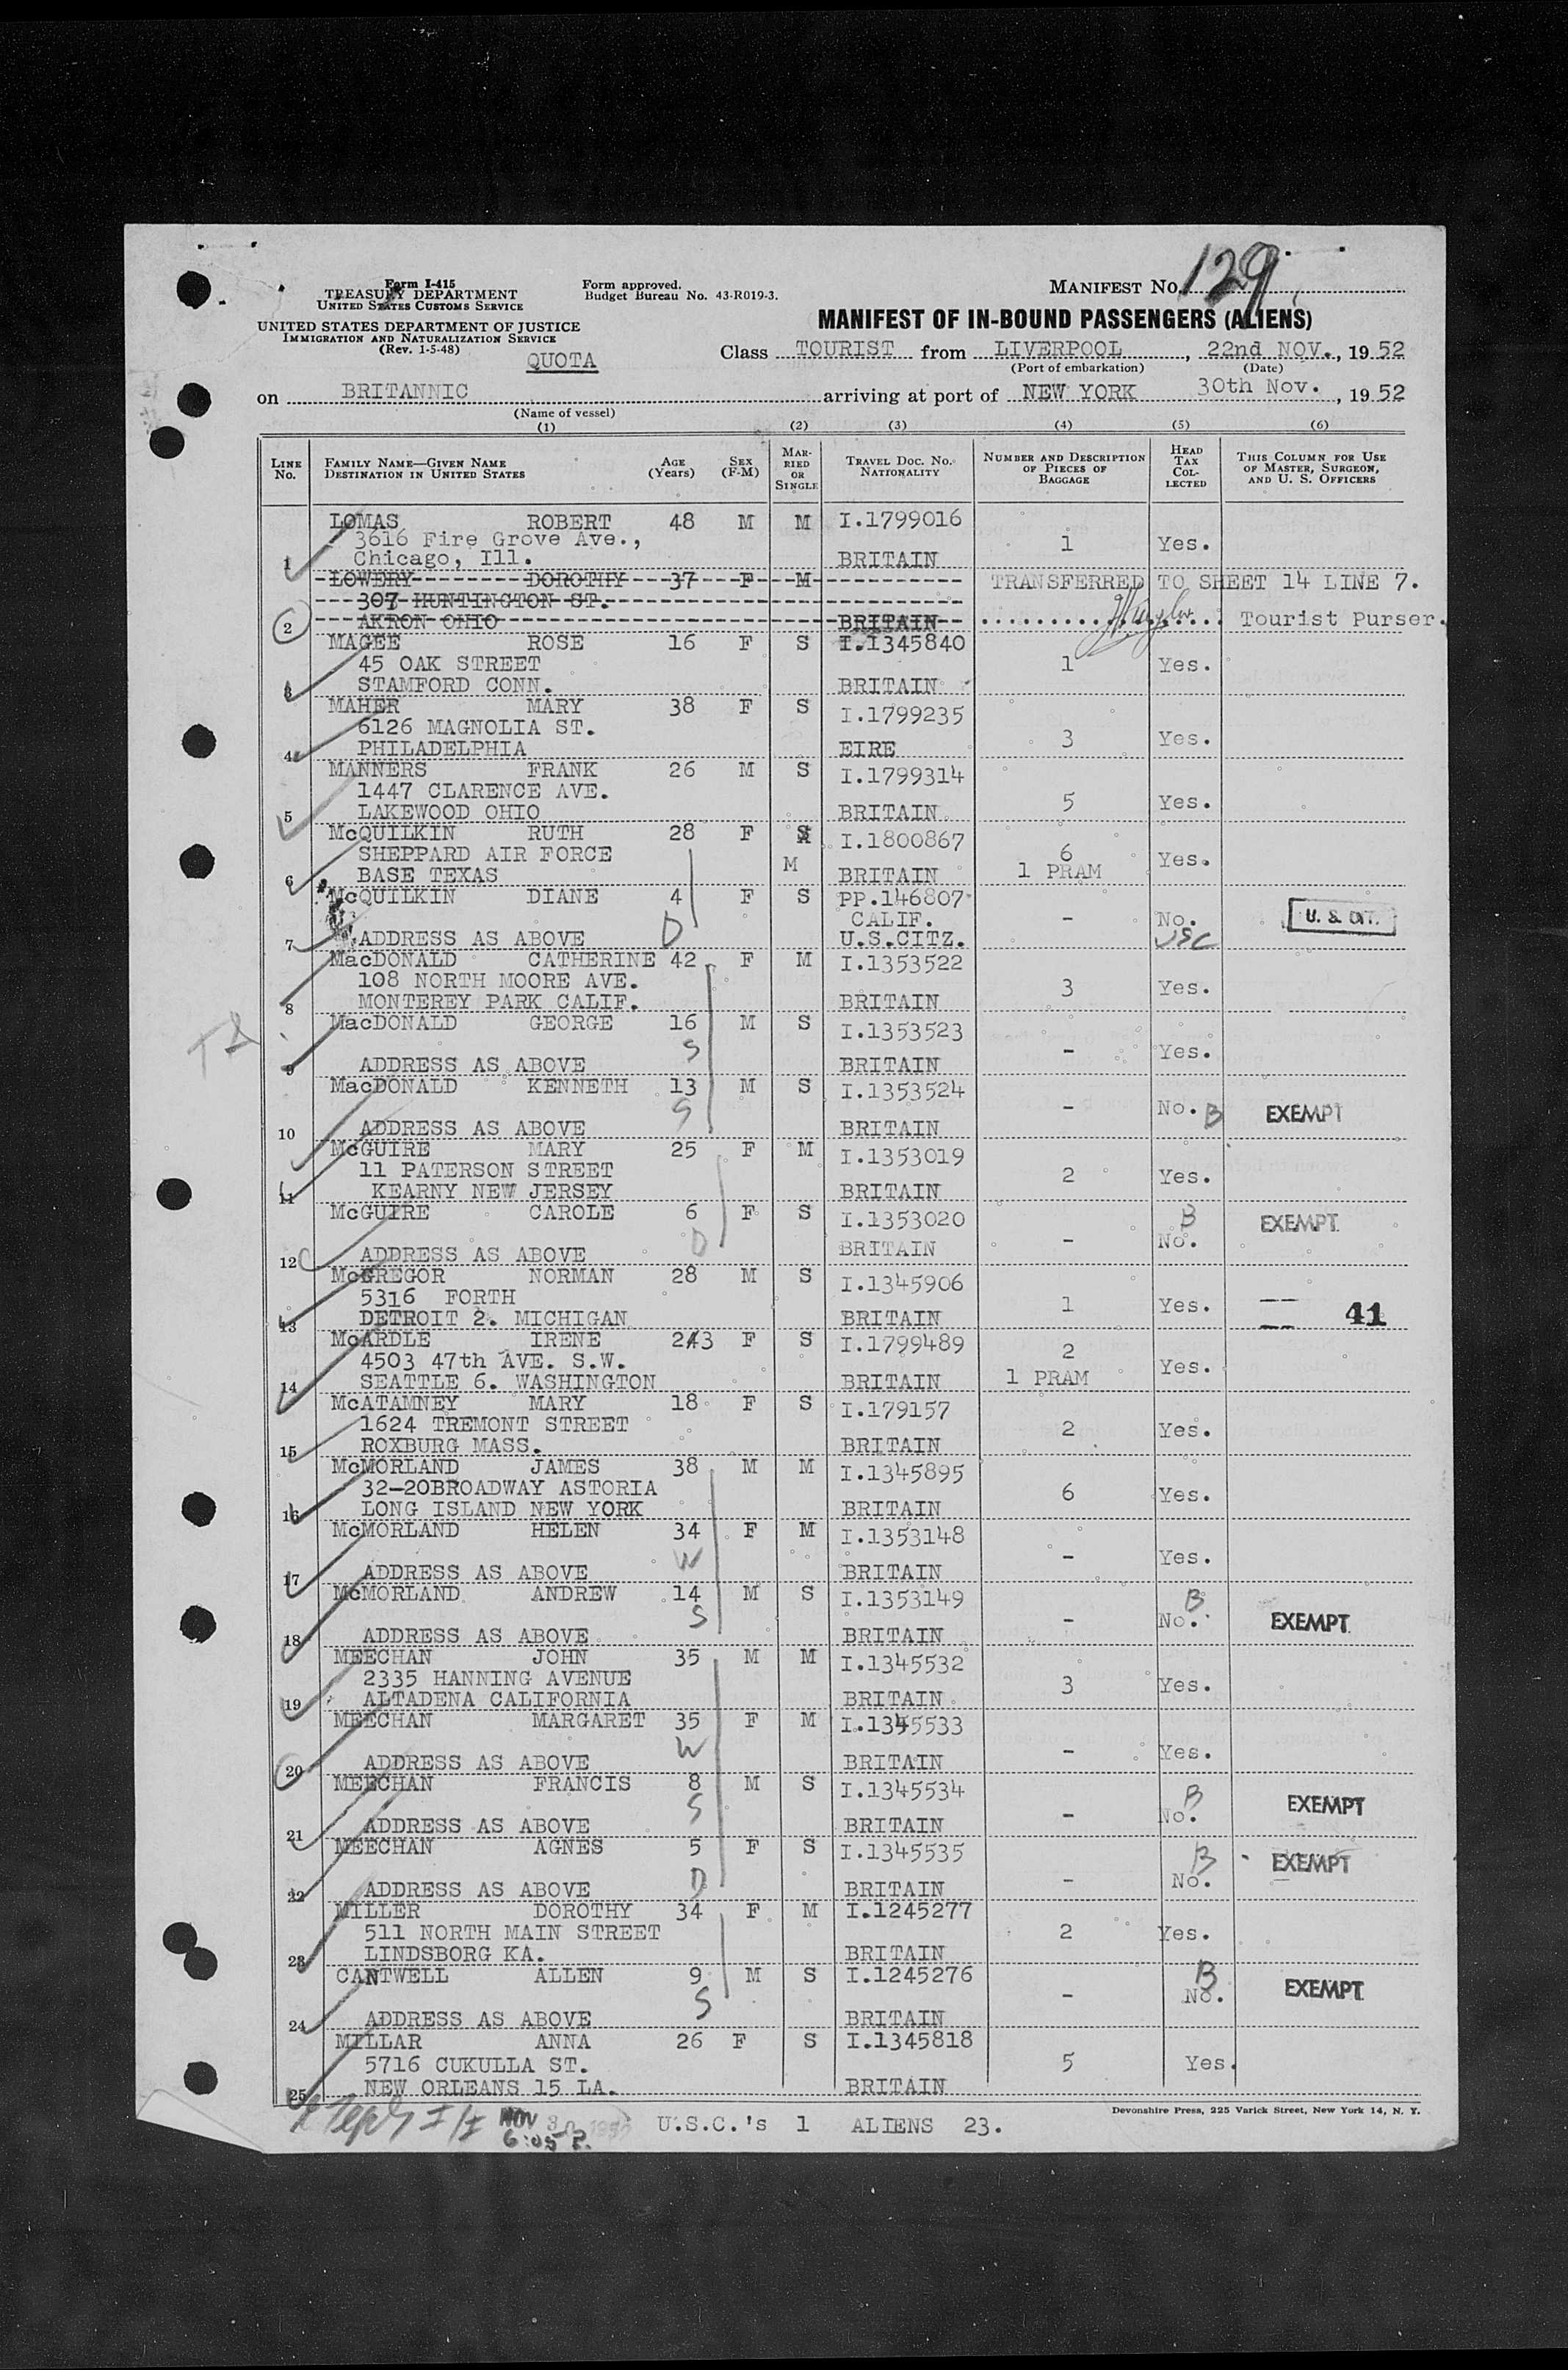 129
Form I-415
TREASURY DEPARTMENT
UNITED STATES CUSTOMS SERVICE
Form approved.
Budget Bureau No. 43-R019-3.
MANIFEST No.
UNITED STATES DEPARTMENT OF JUSTICE
IMMIGRATION AND NATURALIZATION SERVICE
(Rev. 1-5-48)
MANIFEST OF IN-BOUND PASSENGERS (ALIENS)
QUOTA
Class TOURIST from LIVERPOOL, 22nd NOV., 19 52
(Port of embarkation) (Date)
on BRITANNIC arriving at port of NEW YORK 30th Nov., 19 52
(Name of vessel)
(1) (2) (3) (4) (5) (6)
LINE No. FAMILY NAME—GIVEN NAME DESTINATION IN UNITED STATES AGE (Years) SEX (F-M) MARRIED OR SINGLE TRAVEL DOC. No. NATIONALITY NUMBER AND DESCRIPTION OF PIECES OF BAGGAGE HEAD TAX COLLECTED THIS COLUMN FOR USE OF MASTER, SURGEON, AND U. S. OFFICERS
LOMAS ROBERT 48 M M I.1799016
3616 Fire Grove Ave., 1 Yes.
1 Chicago, Ill. BRITAIN
LOWERY DOROTHY 37 F M TRANSFERRED TO SHEET 14 LINE 7.
307 HUNTINGTON ST.
2 AKRON OHIO BRITAIN Tourist Purser.
MAGEE ROSE 16 F S I.1345840
45 OAK STREET 1 Yes.
3 STAMFORD CONN. BRITAIN
MAHER MARY 38 F S I.1799235
6126 MAGNOLIA ST. 3 Yes.
4 PHILADELPHIA EIRE
MANNERS FRANK 26 M S I.1799314
1447 CLARENCE AVE. 5 Yes.
5 LAKEWOOD OHIO BRITAIN
McQUILKIN RUTH 28 F S I.1800867
SHEPPARD AIR FORCE M 6 Yes.
6 BASE TEXAS BRITAIN 1 PRAM
McQUILKIN DIANE 4 F S PP.146807
CALIF. - No. U. S. CIT.
7 ADDRESS AS ABOVE D U.S.CITZ. USC
MacDONALD CATHERINE 42 F M I.1353522
108 NORTH MOORE AVE. 3 Yes.
8 MONTEREY PARK CALIF. BRITAIN
MacDONALD GEORGE 16 M S I.1353523
S - Yes.
9 ADDRESS AS ABOVE BRITAIN
MacDONALD KENNETH 13 M S I.1353524
S - No. B EXEMPT
10 ADDRESS AS ABOVE BRITAIN
McGUIRE MARY 25 F M I.1353019
11 PATERSON STREET 2 Yes.
11 KEARNY NEW JERSEY BRITAIN
McGUIRE CAROLE 6 F S I.1353020 B EXEMPT
D - No.
12 ADDRESS AS ABOVE BRITAIN
McGREGOR NORMAN 28 M S I.1345906
5316 FORTH 1 Yes. 41
13 DETROIT 2. MICHIGAN BRITAIN
McARDLE IRENE 243 F S I.1799489
4503 47th AVE. S.W. 2 Yes.
14 SEATTLE 6. WASHINGTON BRITAIN 1 PRAM
McATAMNEY MARY 18 F S I.179157
1624 TREMONT STREET 2 Yes.
15 ROXBURG MASS. BRITAIN
McMORLAND JAMES 38 M M I.1345895
32-20BROADWAY ASTORIA 6 Yes.
16 LONG ISLAND NEW YORK BRITAIN
McMORLAND HELEN 34 F M I.1353148
W - Yes.
17 ADDRESS AS ABOVE BRITAIN
McMORLAND ANDREW 14 M S I.1353149 B
S - No. EXEMPT
18 ADDRESS AS ABOVE BRITAIN
MEECHAN JOHN 35 M M I.1345532
2335 HANNING AVENUE 3 Yes.
19 ALTADENA CALIFORNIA BRITAIN
MEECHAN MARGARET 35 F M I.1345533
W - Yes.
20 ADDRESS AS ABOVE BRITAIN
MEECHAN FRANCIS 8 M S I.1345534 B
S - No. EXEMPT
21 ADDRESS AS ABOVE BRITAIN
MEECHAN AGNES 5 F S I.1345535 B EXEMPT
D - No.
22 ADDRESS AS ABOVE BRITAIN
MILLER DOROTHY 34 F M I.1245277
511 NORTH MAIN STREET 2 Yes.
23 LINDSBORG KA. BRITAIN
CANTWELL ALLEN 9 M S I.1245276 B
S - No. EXEMPT
24 ADDRESS AS ABOVE BRITAIN
MILLAR ANNA 26 F S I.1345818
5716 CUKULLA ST. 5 Yes.
25 NEW ORLEANS 15 LA. BRITAIN
Devonshire Press, 225 Varick Street, New York 14, N. Y.
NOV 30 1952
6:05 P.
U.S.C.'s 1 ALIENS 23.